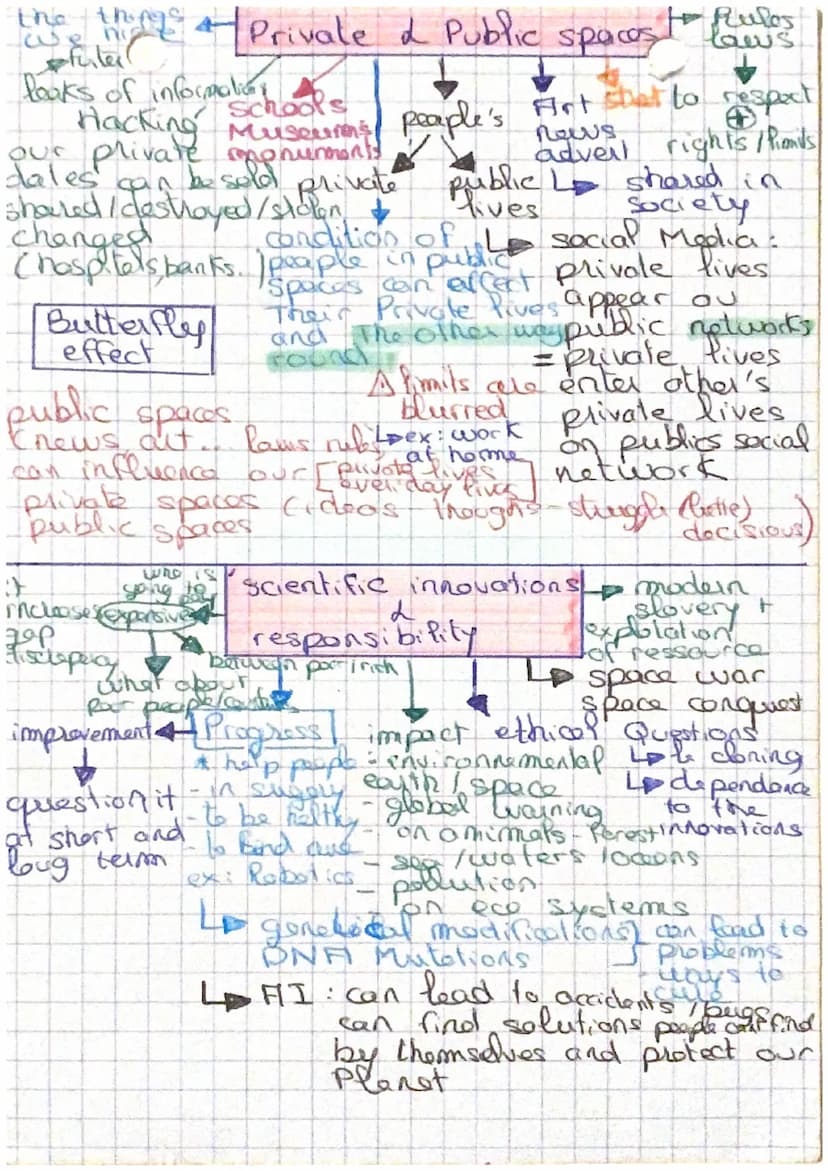 Private & Public spaces
the things
we hide
leaks of information
Hacking
our private
dates can be sold
shared/destroyed/stolen
changed
(hospitals, banks.)
schools
Museums
monuments
people's
private
public
lives
Art
news
advert
to respect
rights/limits
Rules
laws
shared in
society
condition of
people in public
spaces can effect
Their Private lives
and the other way
round
social Media:
private lives
appear on
public networks
= private lives
enter other's
private lives
on publics social
network
Butterfly
effect
⚠ limits are
blurred
ex: work
at home
public spaces
(news art... laws rules
can influence our [private lives
everiday lives]
private spaces (ideas - thoughs - struggle (battle)
public spaces decisions)
scientific innovations
&
responsibility
who is
going to pay
expensive
it
increases
gap
discrepency
between poor/rich
what about
poor people/
modern
slovery +
explotation
of ressource
space war
space conquest
Progress
improvement
question it
at short and
long term
* help people
- in
- to be helthy
- to find
ex: Robotics
impact
- environnemental
earth/space
- global warning
- on animals - Forest
- sea/waters/oceans
- pollution
on eco systems
ethical Questions
cloning
dependance
to the
innovations
genetical modifications} can lead to
DNA Mutations problems
- ways to
cure
AI: can lead to accidents/bugs
can find solutions people can't find
by themselves and protect our
Planet